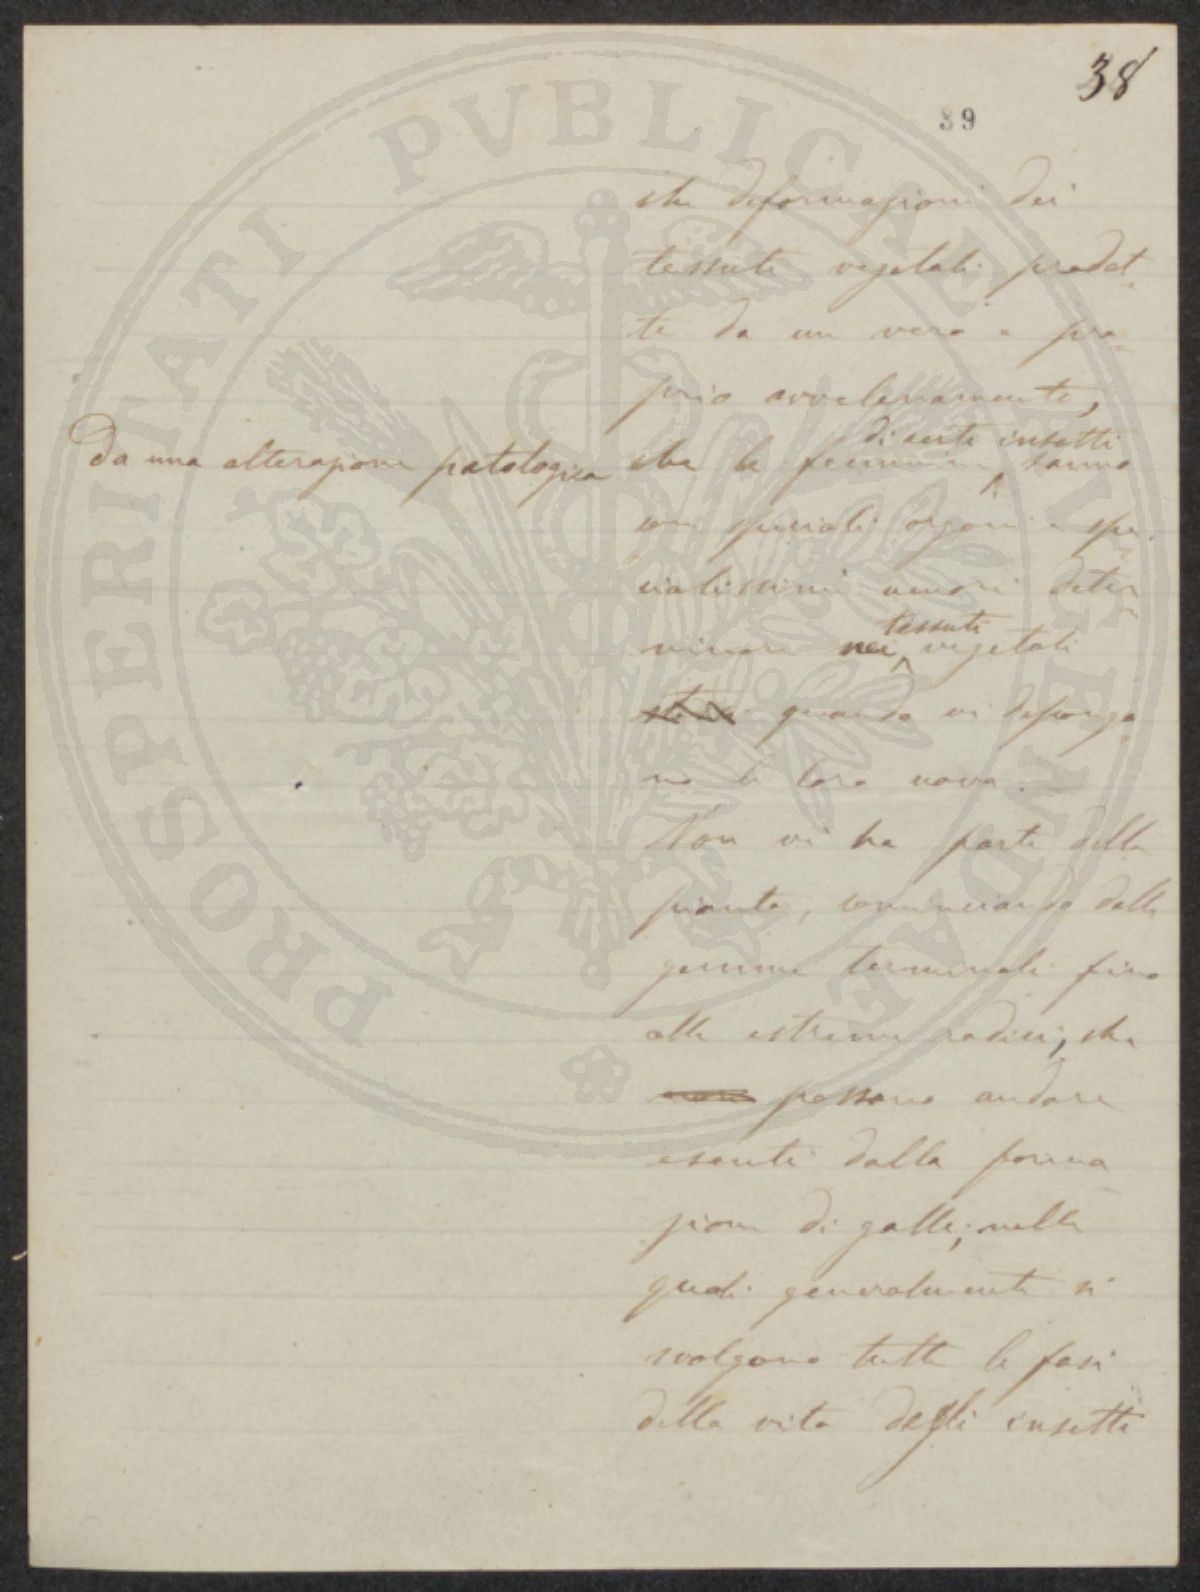 38
39
che deformazioni dei
tessuti vegetali prodot-
te da un vero e pro-
prio avvelenamento,
di certi insetti
Da una alterazione patologica che le femmine sanno
con speciali organi e spe-
cialissimi umori deter-
tessuti
minare nei vegetali
quando vi depongo-
no le loro uova.
Non vi ha parte della
pianta, cominciando dalle
gemme terminali fino
alle estreme radici, che
possano andare
esenti dalla forma-
zione di galle; nelle
quali generalmente si
svolgono tutte le fasi
della vita degli insetti
PROSPERITATI PVBLICAE AVGENDAE